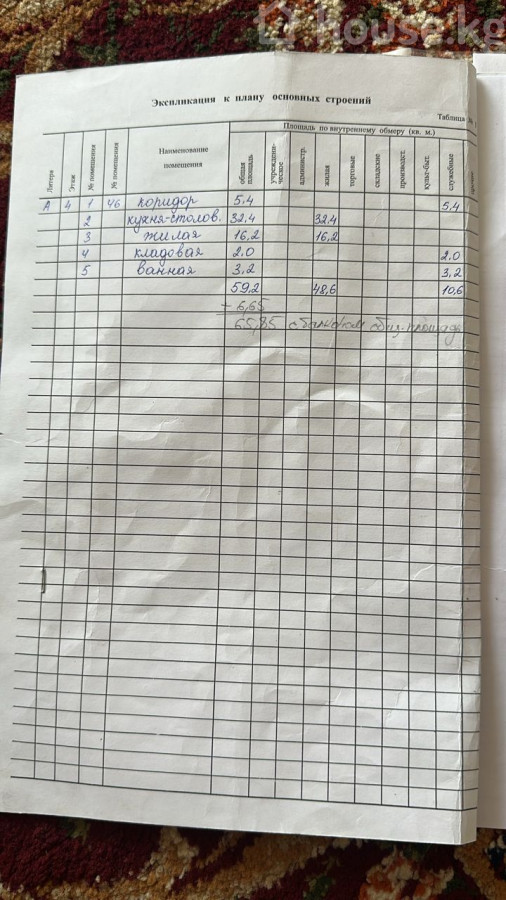 house.kg
Экспликация к плану основных строений
Таблица №
Литера Этаж № помещения № помещения Наименование помещения Площадь по внутреннему обмеру (кв. м.)
общая площадь учрежденческое администр. жилая торговые складские производст. культ-быт. служебные
А 4 1 46 коридор 5.4 5,4
2 кухня-столов. 32,4 32,4
3 жилая 16,2 16,2
4 кладовая 2.0 2.0
5 ванная 3,2 3,2
59,2 48,6 10,6
+ 6,65
65,85 с балконом общ. площадь